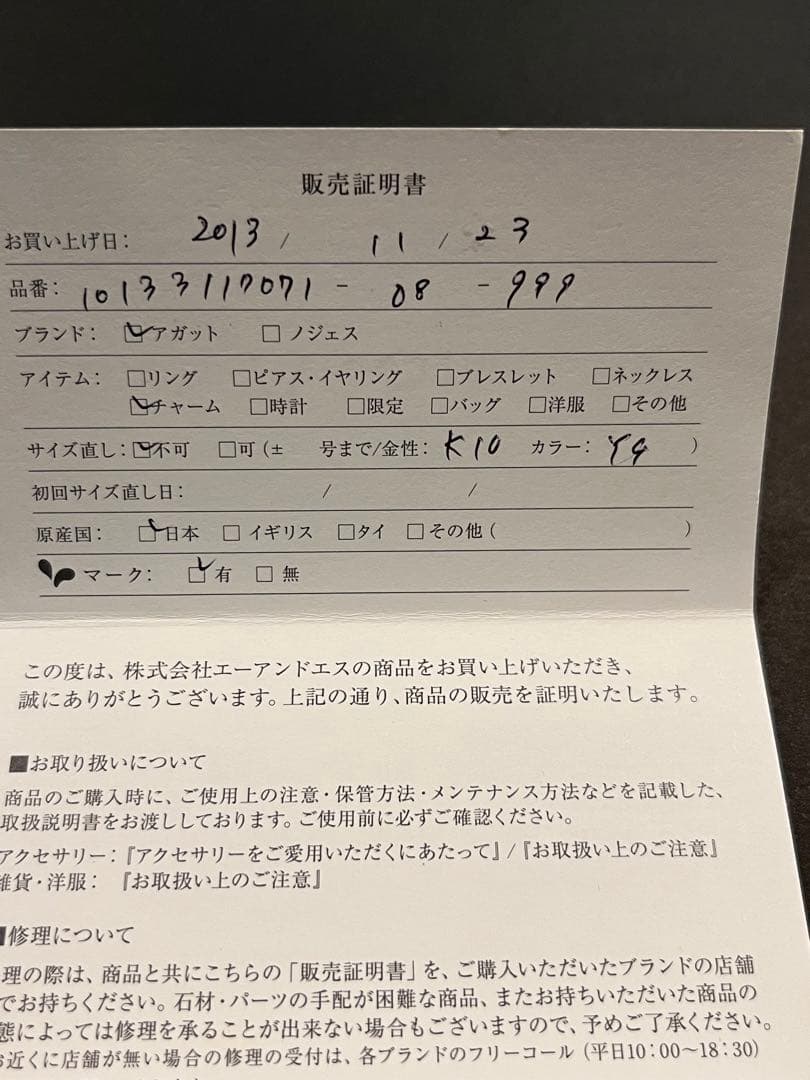 販売証明書
お買い上げ日： 2013 / 11 / 23
品番： 10133117071 - 08 - 999
ブランド： ☑アガット □ ノジェス
アイテム： □リング □ピアス・イヤリング □ブレスレット □ネックレス
☑チャーム □時計 □限定 □バッグ □洋服 □その他
サイズ直し：☑不可 □可（± 号まで/金性： K10 カラー： YG ）
初回サイズ直し日： / /
原産国： ☑日本 □ イギリス □タイ □その他（ ）
マーク： ☑有 □ 無
この度は、株式会社エーアンドエスの商品をお買い上げいただき、
誠にありがとうございます。上記の通り、商品の販売を証明いたします。
■お取り扱いについて
商品のご購入時に、ご使用上の注意・保管方法・メンテナンス方法などを記載した、
取扱説明書をお渡ししております。ご使用前に必ずご確認ください。
アクセサリー：『アクセサリーをご愛用いただくにあたって』/『お取扱い上のご注意』
雑貨・洋服： 『お取扱い上のご注意』
■修理について
理の際は、商品と共にこちらの「販売証明書」を、ご購入いただいたブランドの店舗
でお持ちください。石材・パーツの手配が困難な商品、またお持ちいただいた商品の
態によっては修理を承ることが出来ない場合もございますので、予めご了承ください。
お近くに店舗が無い場合の修理の受付は、各ブランドのフリーコール（平日10：00〜18：30）